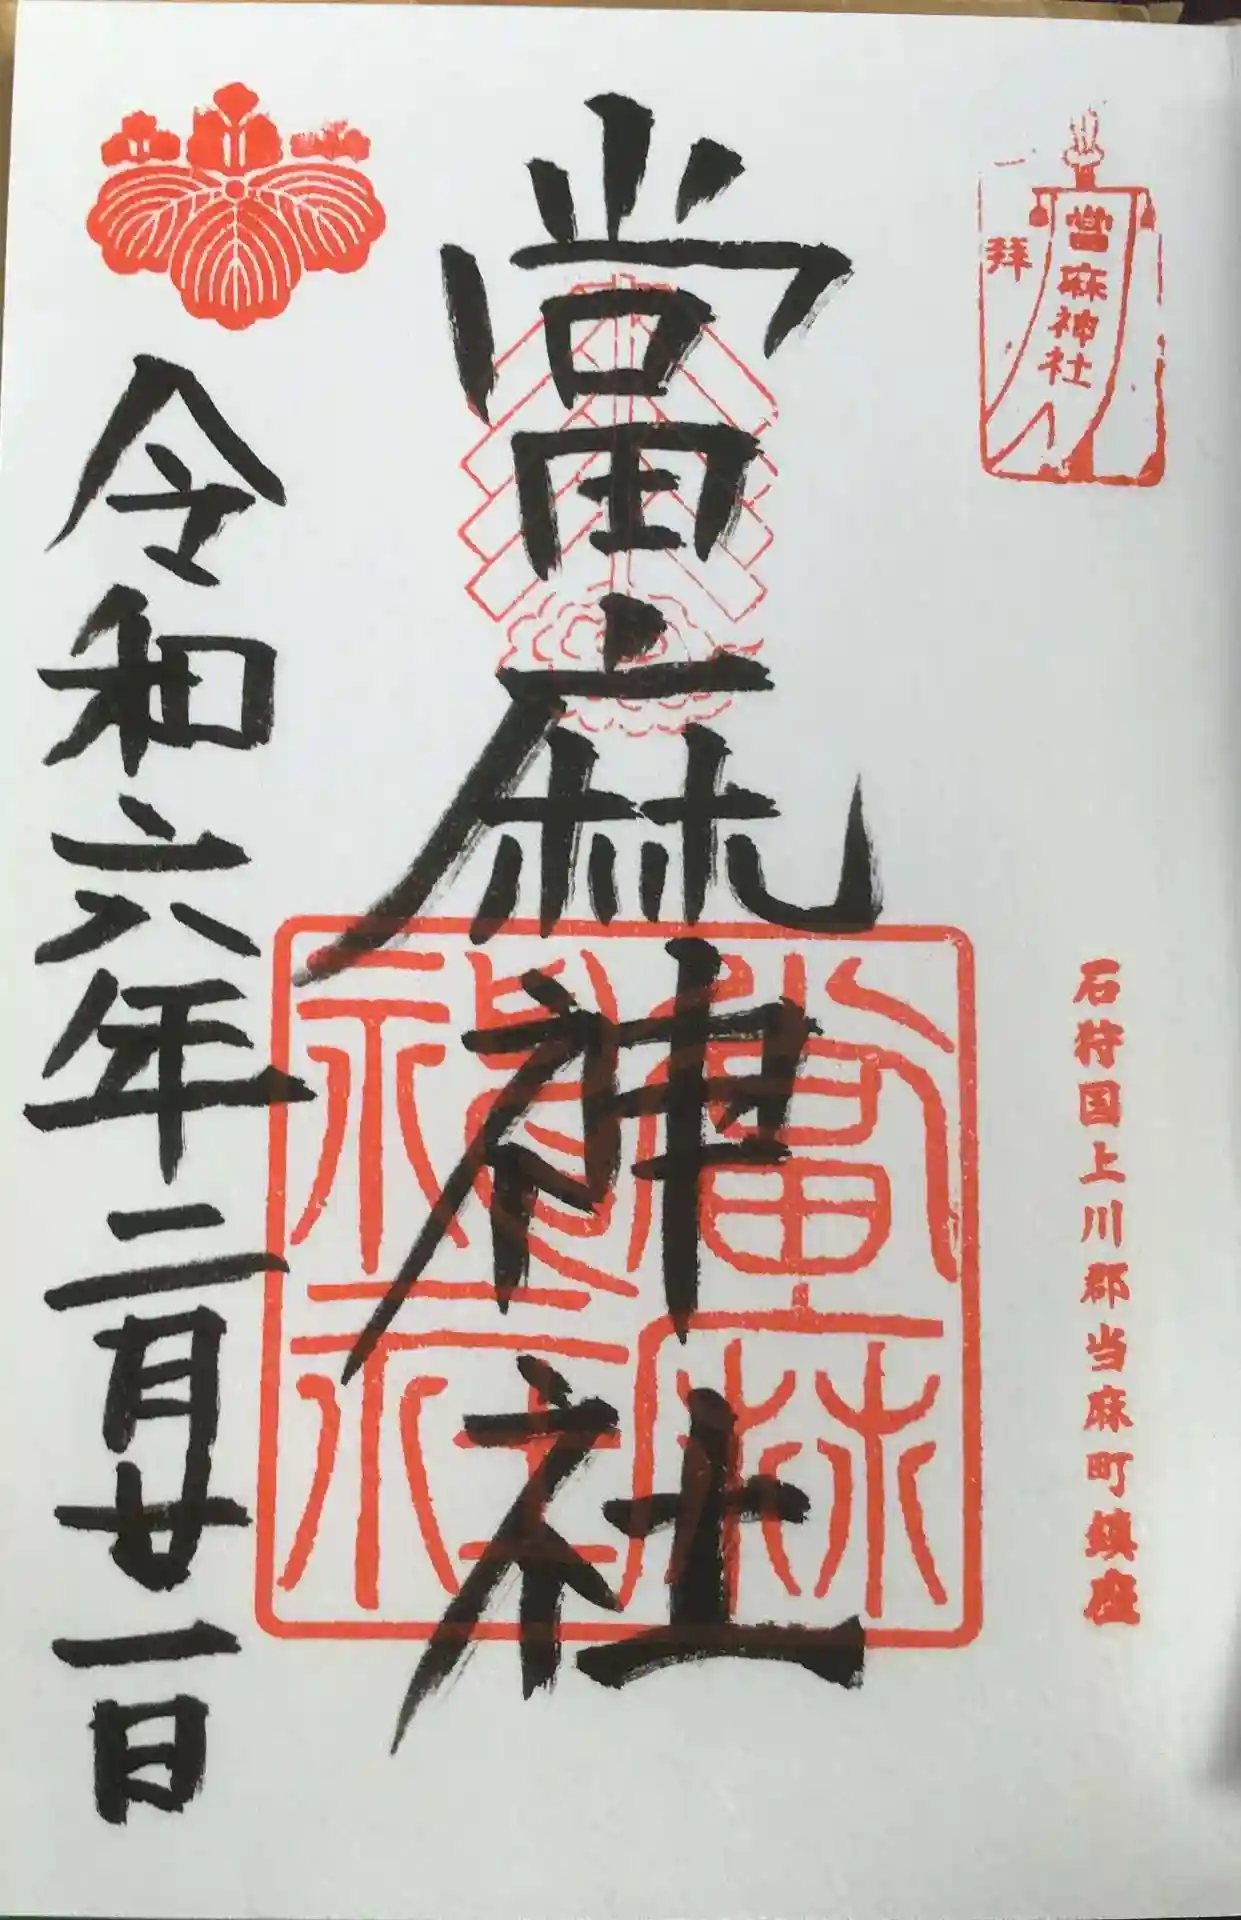 當麻神社
拝
石狩国上川郡当麻町鎮座
當麻神社
當麻
神社
令和六年二月廿一日